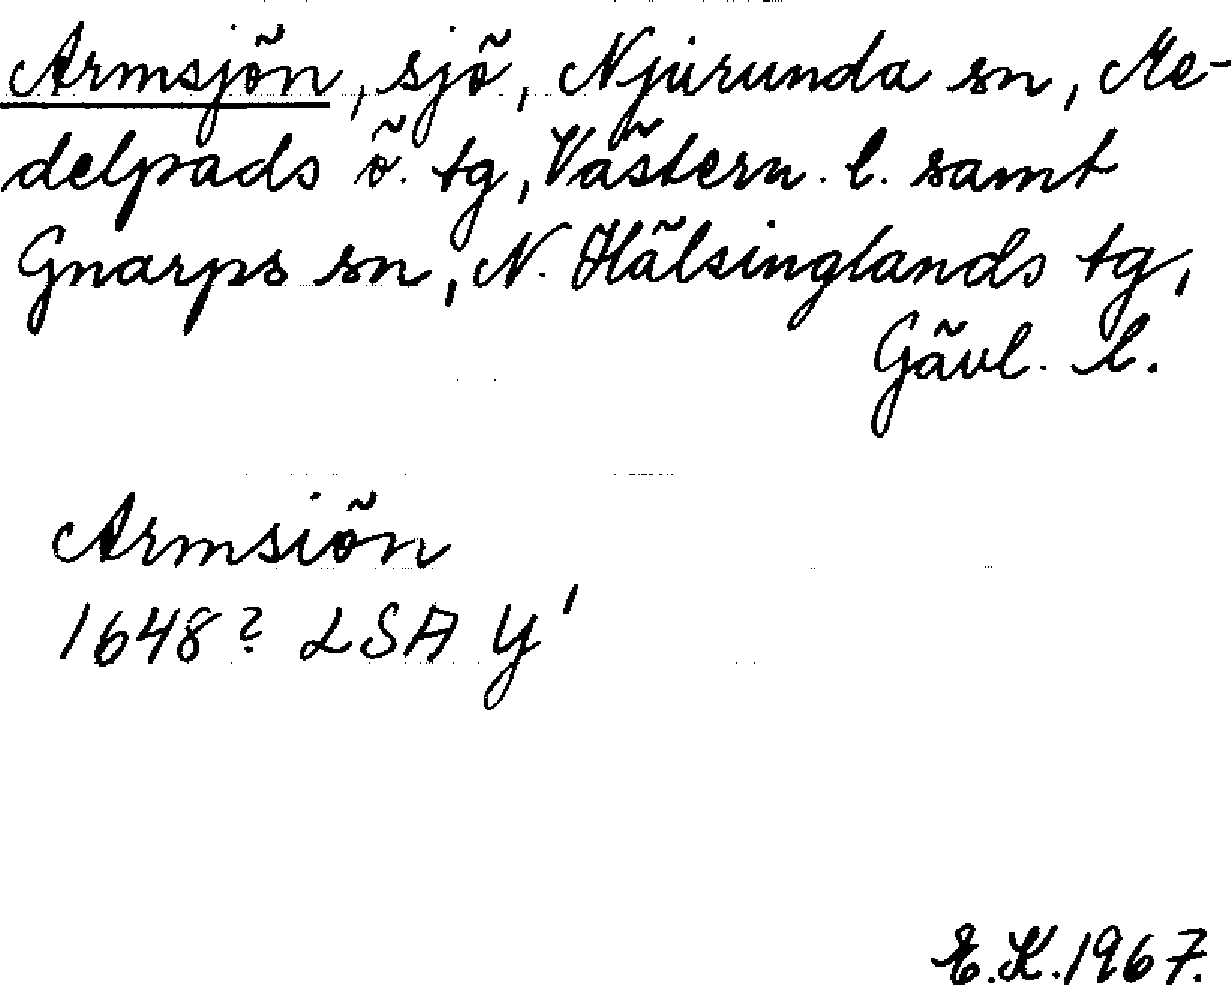 Armsjön, sjö, Njurunda sn, Me-
delpads ö. tg, Västern. l. samt
Gnarps sn, N. Hälsinglands tg,
Gävl. l.
Armsiön
1648? LSA Y'
E.K.1967.